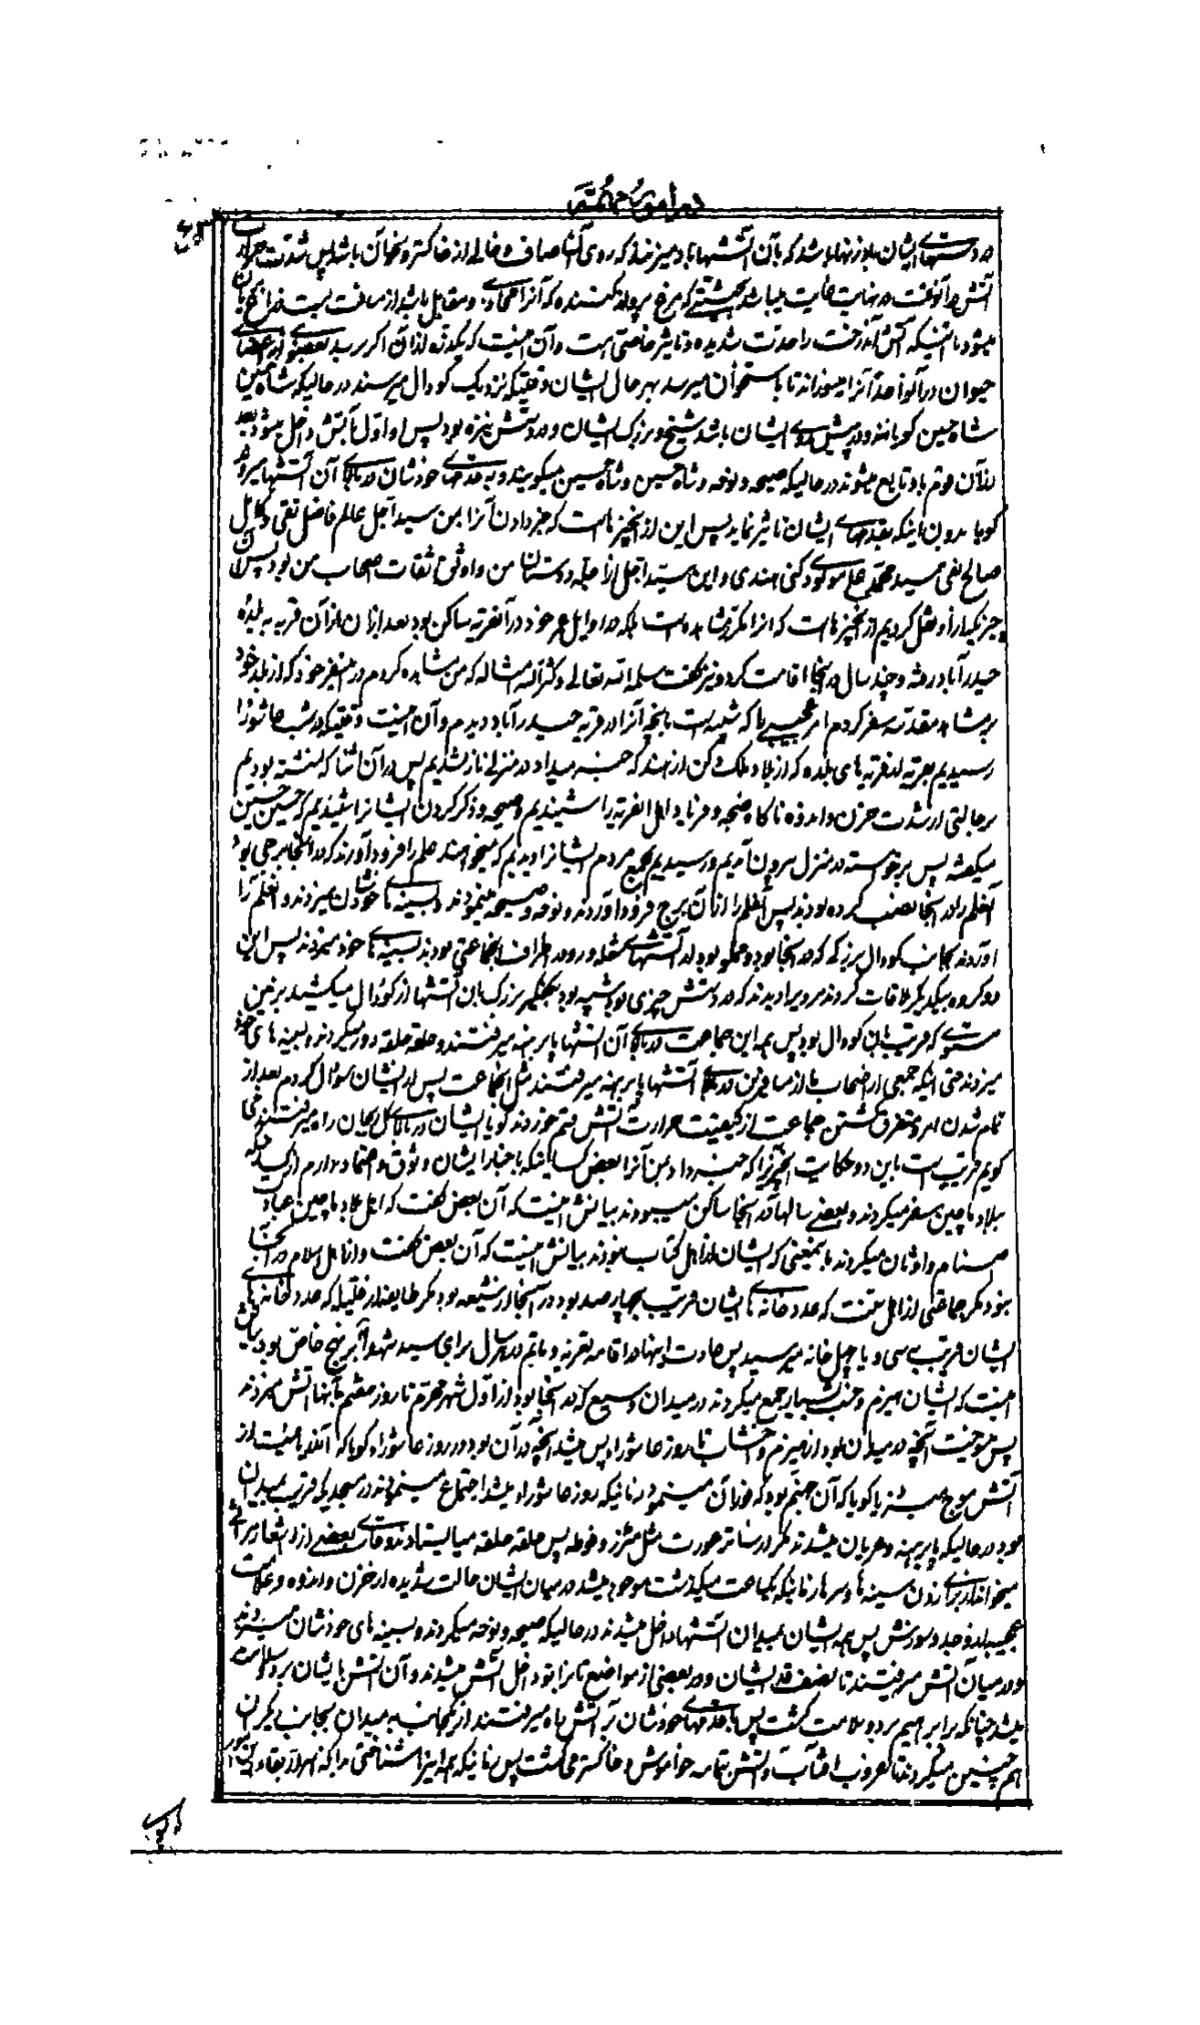 در امور مهمته
در دستهای ایشان باد زنها باشد که بآن آتشها باد میزنند که روی آتش صاف و خالی از خاکستر و نحو آن باشد پس شدت حرارت
آتش در آنوقت در نهایت غایت میباشد بحیثیتی که مرغ پرواز کننده که آنرا محاذی و مقابل باشد از مسافت بیست ذراع بریان
میشود با اینکه آتش آندرخت را حدت شدیده و تاثیر خاصی است و آن اینست که یکذره از آن اگر برسد ببعضی از اعضای
حیوان در آنواحد آنرا میسوزاند تا باستخوان میرسد بهر حال ایشان وقتیکه نزدیک گودال میرسند در حالیکه شاه حسین
شاه حسین گویانند و در پیش روی ایشان باشد شیخ و بزرگ ایشان و در دستش نیزه بود پس او اول بآتش داخل میشود بعد
از آن قوم باو تابع میشوند در حالیکه صیحه و نوحه و شاه حسین و شاه حسین میگویند و بقدمهای خودشان در بالای آن آتشها میروند
گویا بدون اینکه بقدمهای ایشان تاثیر نماید پس این از آنچیزهاست که خبر دادن آنرا بمن سید اجل عالم فاضل تقی و کامل
صالح نقی سید محمد علی موسوی دکنی هندی و این سید اجل از جمله دوستان من و اوثق ثقات اصحاب من بود پس آن
چیزیکه از او نقل کردیم از آنچیزهاست که آنرا مکرر مشاهده است بلکه در اوایل عمر خود در آنقریه ساکن بود بعد از آن از آن قریه ببلده
حیدرآباد رفته و چند سال در آنجا اقامت کرد و نیز گفت سلمه الله تعالی و کثر الله امثاله که من مشاهده کردم در سفر خود که از بلد خود
بمشاهد مقدسه سفر کردم امر عجیبی را که شبیه است بآنچه آنرا در قریه حیدرآباد دیدم و آن اینست وقتیکه در شب عاشورا
رسیدیم بقریه از قریه های بلده که از بلاد ملک دکن از هند که خبر میداد در منزلی نازل شدیم پس در آن اثنا که نشسته بودیم
بر حالتی از شدت حزن و اندوه ناگاه ضجه و فریاد اهل آنقریه را شنیدیم و صیحه و ذکر کردن ایشانرا شنیدیم که حسین حسین
میگفتند پس برخواسته در منزل بیرون آمدیم و رسیدیم بجمع مردم ایشانرا دیدیم که میخواهند علم را فرود آورند که در آنجا برجی بود
آنعلم را در آنجا نصب کرده بودند پس آنعلم را از آن برج فرود آوردند و نوحه و صیحه مینمودند و بسینه های خودشان میزدند و آنعلم را
آوردند بجانب گودال بزرگ که در آنجا بود و مملو بود از آتشهای شعله ور و در اطراف آنجماعتی بودند بسینه های خود میزدند پس این
دو گروه بیکدیگر ملاقات کردند مردی را دیدند که در دستش چیزی بود شبیه بود بکفگیر بزرگ بآن آتشها از گودال میکشید بر زمین
مستوی که قریب بآن گودال بود پس همه این جماعت در بالای آن آتشها پابرهنه میرفتند و حلقه حلقه دور میکردند و بسینه های خود
میزدند حتی اینکه جمعی از اصحاب ما از مسافرین در بالای آتشها پابرهنه میرفتند مثل آنجماعت پس از ایشان سوال کردم بعد از
تمام شدن امر و متفرق گشتن جماعت از کیفیت حرارت آتش قسم خوردند گویا ایشان در بالای گل ریحان راه میرفتند می
گویم قریب است باین دو حکایت آنچیزیرا که خبر داد بمن آنرا بعض کسانیکه باخبار ایشان وثوق و اعتماد دارم از کسانیکه
ببلاد ماچین سفر میکردند و بعضی سالها در آنجا ساکن میبودند بیانش اینست که آن بعض گفت که اهل بلاد ماچین عباد
اصنام و اوثان میکردند بمعنی که ایشان از اهل کتاب نبودند بیانش اینست که آن بعض گفت و از اهل اسلام در آنجا
نبود مگر جماعتی از اهل سنت که عدد خانه های ایشان قریب بچهارصد بود در آنجا از شیعه نبود مگر طایفه از قلیل که عدد خانه های
ایشان قریب بسی و یا چهل خانه میرسید پس عادت اینها در اقامه تعزیه و ماتم در هر سال برای سید شهدا بر نهج خاص بود بیانش
اینست که ایشان هیزم و خشب بسیار جمع میکردند در میدان وسیع که در آنجا بود از اول شهر محرم تا روز هفتم بآنها آتش میزدند
پس میسوخت آنچه در میدان بود از هیزم و اخشاب تا روز عاشورا پس میشد آنچه در آن بود در روز عاشورا گویا که آن دریائیست از
آتش موج میزند یا گویا که آن جهنم بود که فوران مینمود زمانیکه روز عاشورا میشد اجتماع مینمودند در مسجدیکه قریب بمیدان
بود در حالیکه پابرهنه و عریان میشدند مگر از ساتر عورت مثل مئزر و فوطه پس حلقه حلقه میایستادند و مراثی بعضی از اشعار مراثی
میخواندند برای زدن سینه ها و سرها زمانیکه یکساعت میگذشت موجود میشد در میان ایشان حالت شدیده از حزن و اندوه و علامت
عجیبه از وجد و سوزش پس همه ایشان بمیدان آتشها داخل میشدند در حالیکه صیحه و نوحه میکردند و بسینه های خودشان میزدند
و در میان آتش میرفتند تا نصف قد ایشان و در بعضی از مواضع تا زانو داخل آتش میشدند و آن آتش بایشان برد و سلامت
میشد چنانکه بر ابراهیم برد و سلامت گشت پس با قدمهای خودشان بر آتش راه میرفتند از یکجانب میدان بجانب دیگر آن
هم چنین میکردند تا غروب آفتاب و آتش بتمامه خاموش و خاکستر می گشت پس زمانیکه همه اینرا شناختی بدانکه اسرار بقاء این امور